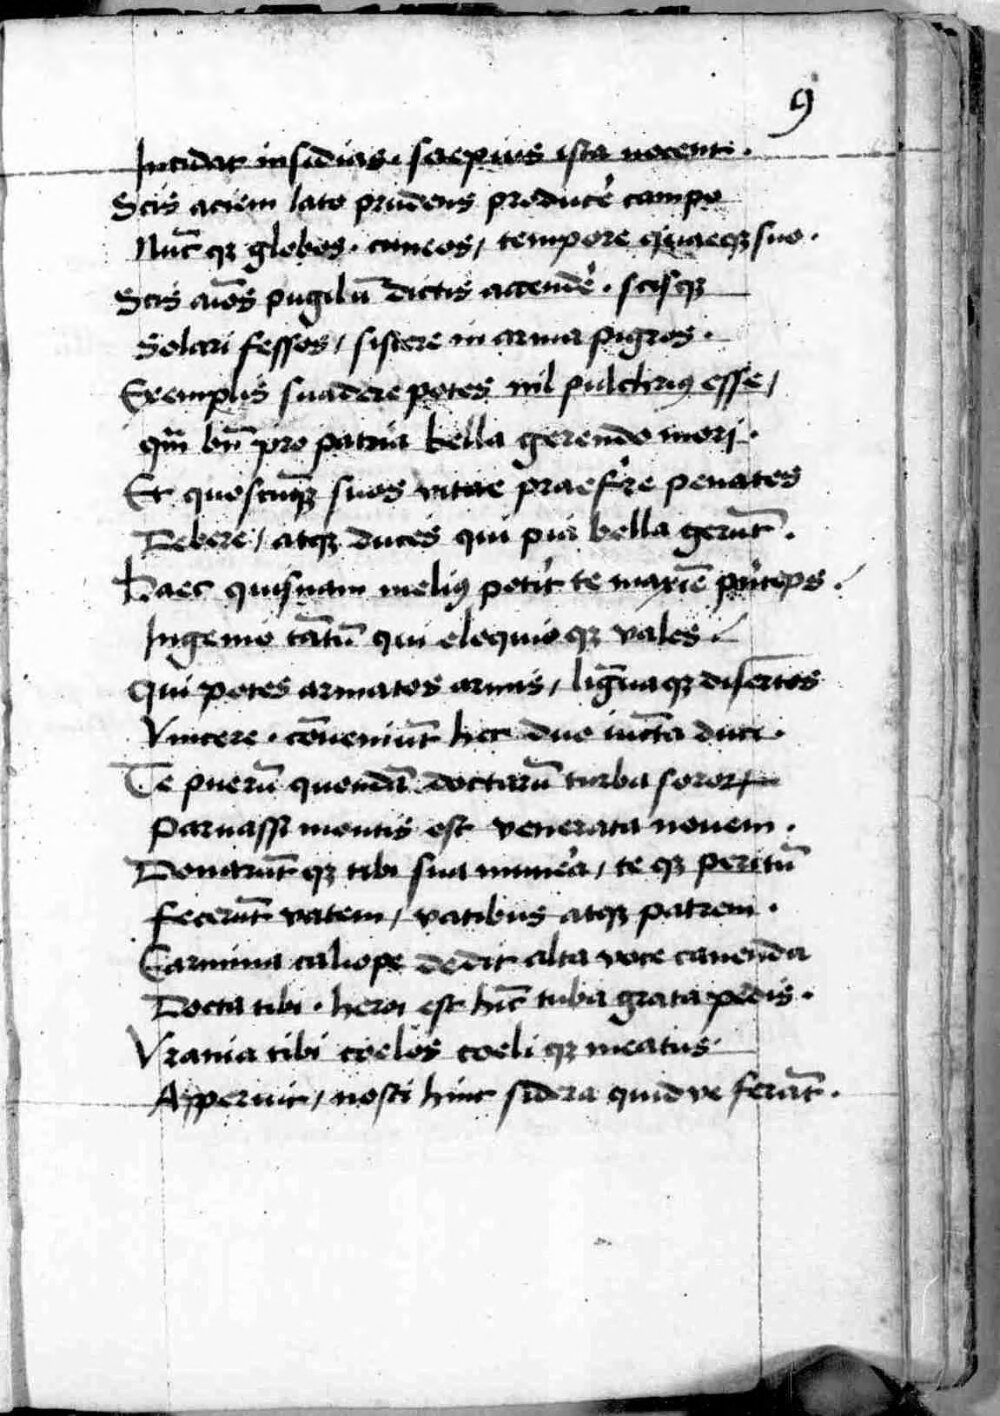 9
Incidat insidias. saepius ista nocent.
Scis aciem lato prudens producẻ campo
Nūc qꝫ globos. cuneos, tempore quaeqꝫ suo.
Scis aīos pugilū dictis accendẻ. scisqꝫ
Solari fessos, sistere in arma pigros.
Exemplis suadere potes nil pulchriꝰ esse,
qm̄ bn̄ pro patria bella gerendo mori.
Et quoscūqꝫ suos vitae praefẻre penates
Debere, atqꝫ duces qui pia bella gerūt.
Haec quisnam meliꝰ potiͥt te maxīe pͥnceps./
Ingenio tātū qui eloquio qꝫ vales./
Qui potes armatos armis, līguaqꝫ disertos
Vincere. cōueniūt hec duo iūcta duci.
Te puerū quondā doctarū turba sororꝝ
Parnassi montis est venerata nouem.
Donarūt qꝫ tibi sua munẻa, te qꝫ peritū
fecerūt vatem, vatibus atqꝫ patrem.
Carmina caliope dedit alta voce canenda
Docta tibi. heroi est hīc tuba grata pedis.
Vrania tibi coelos coeli qꝫ meatus
Apperuit, nosti hinc sidera quid ve ferāt.